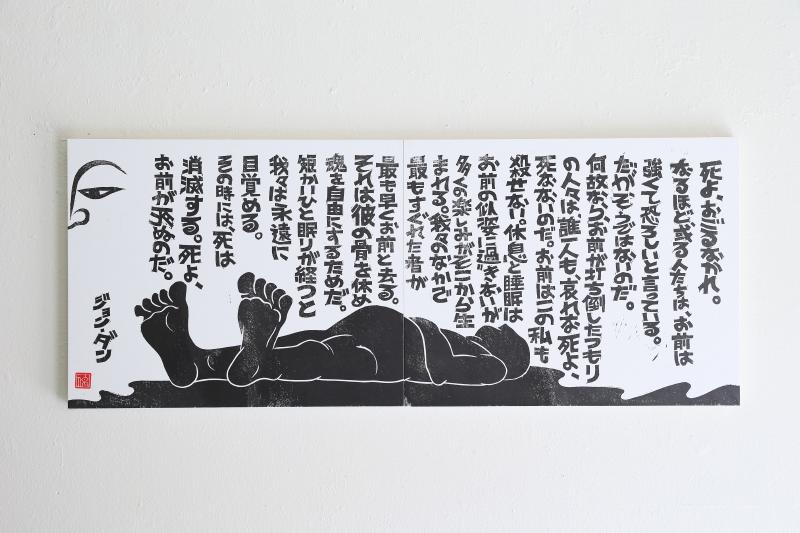 死よ、おごるなかれ。
なるほど或る人たちは、お前は
強くて恐ろしいと言っている。
だがそうではないのだ。
何故なら、お前が打ち倒したつもり
の人々は、誰一人も、哀れな死よ、
死なないのだ。お前はこの私も
殺せない。休息と睡眠は
お前の似姿に過ぎないが
多くの楽しみがそこから生
まれる。我々のなかで
最もすぐれた者が
最も早くお前と去る。
それは彼の骨を休め
魂を自由にするためだ。
短かいひと眠りが経つと
我々は永遠に
目覚める。
その時には、死は
消滅する。死よ、
お前が死ぬのだ。
ジョン・ダン